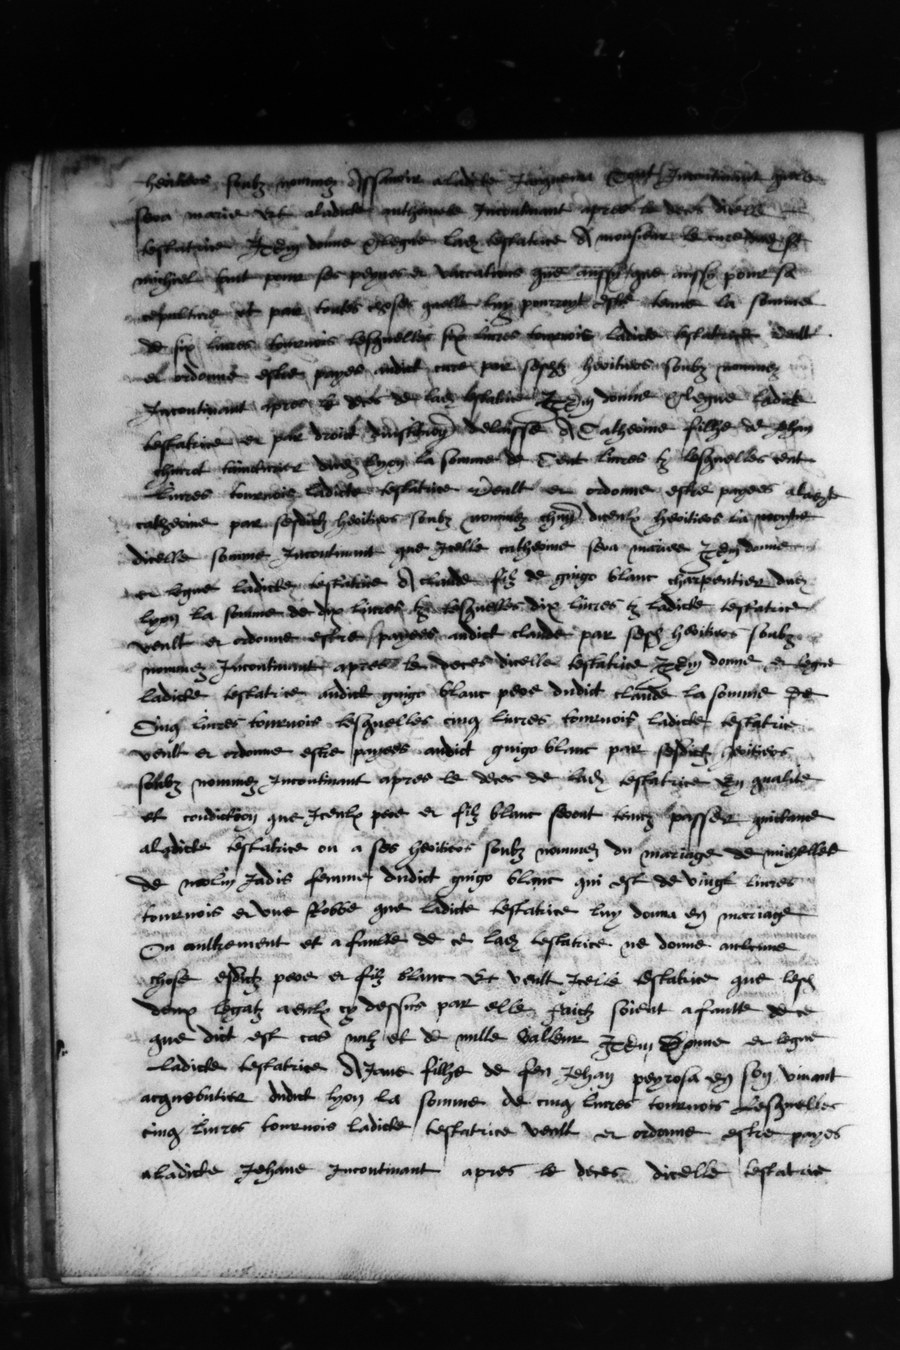 heritiers soubz nommez Assavoir a ladicte Incontinant
sera mariee Et a ladicte anthoinete Incontinant apres le deces dicelle
testatrice Item donne & legue lad testatrice A monsieur le cure dud st
michiel tant pour ses peynes et vaccations que aussy pour sa
sepulture et par toutes choses quelle luy pourroit estre tenue la somme
de six livres tournois lesquelles six livres tournois ladicte testatrice veult
et ordonne estre payees audict cure par sesdz heritiers soubz nommez
Incontinant apres le deces de lad testatrice Item donne & legue ladicte
testatrice et par droict delaisse A Catherine filhe de Jehan
dud lyon la somme de Cent livres tz lesquelles cent
livres tournois ladicte testatrice Veult et ordonne estre payees a ladicte
catherine par sesdictz heritiers soubz nommez diceulx heritiers la
dicelle somme Incontinant que Icelle catherine sera mariee Item donne
et legue ladicte testatrice A claude filz de guigo blanc charpentier dud
lyon la somme de dix livres tz lesquelles dix livres tz ladicte testatrice
veult et ordonne estre payees audict claude par sesd heritiers soubz
nommez Incontinant apres le deces dicelle testatrice Item donne et legue
ladicte testatrice audict guigo blanc pere dudict claude la somme De
Cinq livres tournois lesquelles cinq livres tournois ladicte testatrice
veult et ordonne estre payees audict guigo blanc par sesdictz heritiers
soubz nommez Incontinant apres le deces de lad testatrice En qualite
et condicion que Iceulx pere et filz blanc seront tenuz passer quictance
a ladicte testatrice ou a ses heritiers soubz nommez du mariage de
de Jadis femme dudict guigo blanc qui est de vingt livres
tournois et une Robbe que ladicte testatrice luy donna en mariage
Ou aultrement et a faulte de ce lad testatrice ne donne aulcune
chose esdictz pere et filz blanc Et veult Icelle testatrice que lesd
deux legatz a eulx cy dessus par elle faictz soient a faulte de ce
que dict est cas nulz et de nulle Valleur Item Donne et legue
Ladicte testatrice A Jane filhe de feu Jehan peyrosa en son vivant
acquebutier dudict lyon la somme de cinq livres tournois Lesquelles
cinq livres tournois ladicte testatrice veult et ordonne estre payes
a ladicte Jehane Incontinant apres le deces dicelle testatrice